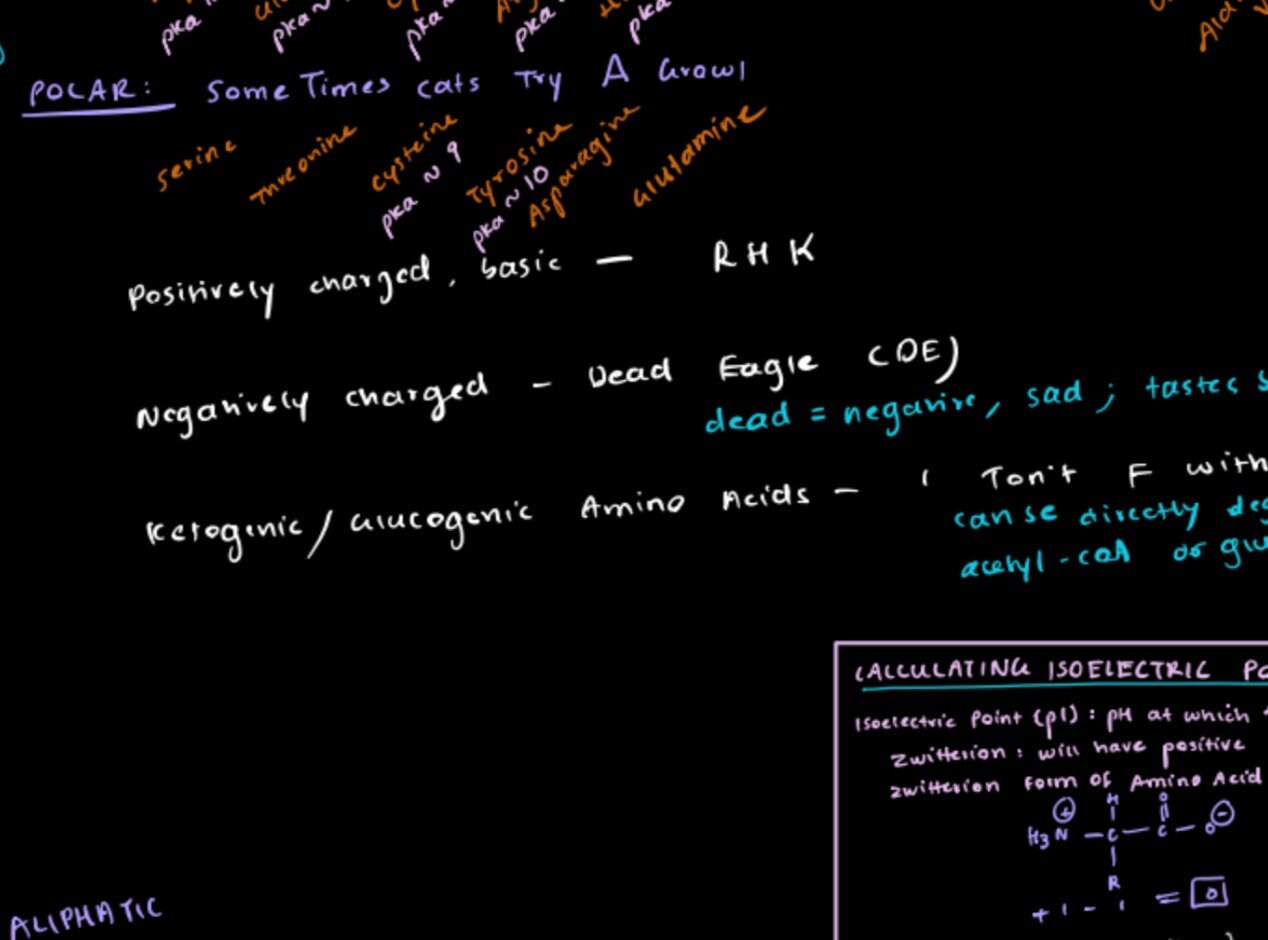 pka
pka~
pka~
pka
pka
Ala
POLAR: Some Times cats Try A Growl
serine
Threonine
cysteine
pka ~ 9
Tyrosine
pka ~ 10
Asparagine
Glutamine
Positively charged, basic — R H K
Negatively charged - Dead Eagle (DE)
dead = negative, sad ; tastes s
Ketogenic / Glucogenic Amino Acids — ' Ton't F with
can se directly deg
acetyl-coA or glu
CALCULATING ISOELECTRIC PO
Isoelectric Point (pI) : pH at which
zwitterion : will have positive
zwitterion Form of Amino Acid
H O
H3N⊕ — C — C — O⊖
R
+1 - 1 = 0
ALIPHATIC